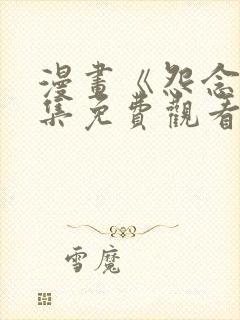 漫畫《怨念
集免費觀看
雪魔